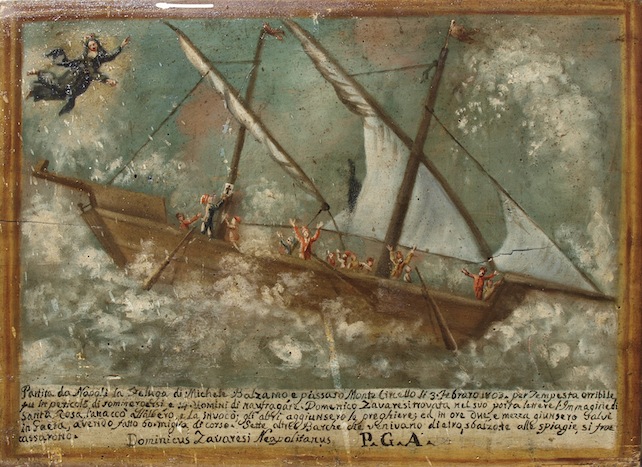 Partita da Napoli la Feluga di Michele Balzamo e passato Monte Circello li 3. Febraro 1803. per Tempesta orribile
fu in pericolo di sommergersi e 14 Uomini di naufragare. Domenico Zavaresi trovata nel suo portalenere l'Immagine di
Santa Rosa l'attaccò all'albero, e la invocò; gli altri aggiunsero le preghiere; ed in ore due, e mezza giunsero salvi
in Gaeta, avendo fatto 60 miglia di corso. Sette altre Barche che venivano dietro sbalzate alle spiagie si fra
cassarono. Dominicus Zavaresi Neapolitanus P. G. A.